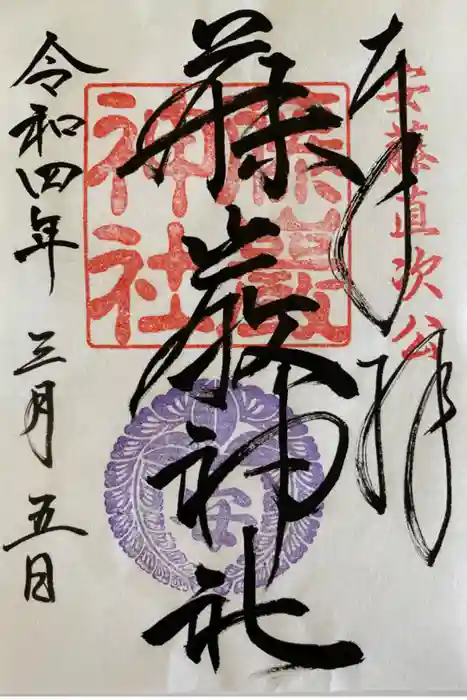 奉拝
安藤直次公
藤巖神社
藤巖神社
安
令和四年 三月 五日